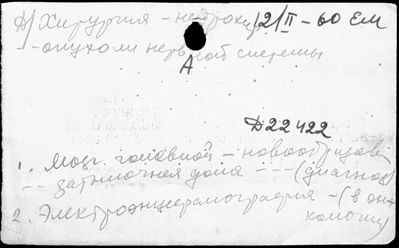 А) Хирургия – нейрохир 12/II – 60 ЕМ
– опухоли нервной системы
А
Д22422
1. Мозг. головной – новообразов
-- затылочная доля --- (диагноз)
2. Электроэнцефалография – (в онкологии